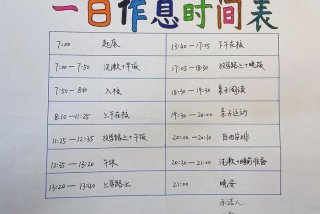 一日作息时间表
7:00 起床
7:00—7:50 洗漱+早饭
7:50—8:10 入校
8:10—11:25 上午在校
11:25—12:35 放学路上+午饭
12:35—13:20 午休
13:20—13:40 上学路上
13:40—17:05 下午在校
17:05—18:30 放学路上+晚饭
18:30—19:30 亲子阅读
19:30—20:00 亲子运动
20:00—20:30 自由安排
20:30—21:00 洗漱+睡前准备
21:00 晚安
承诺人: